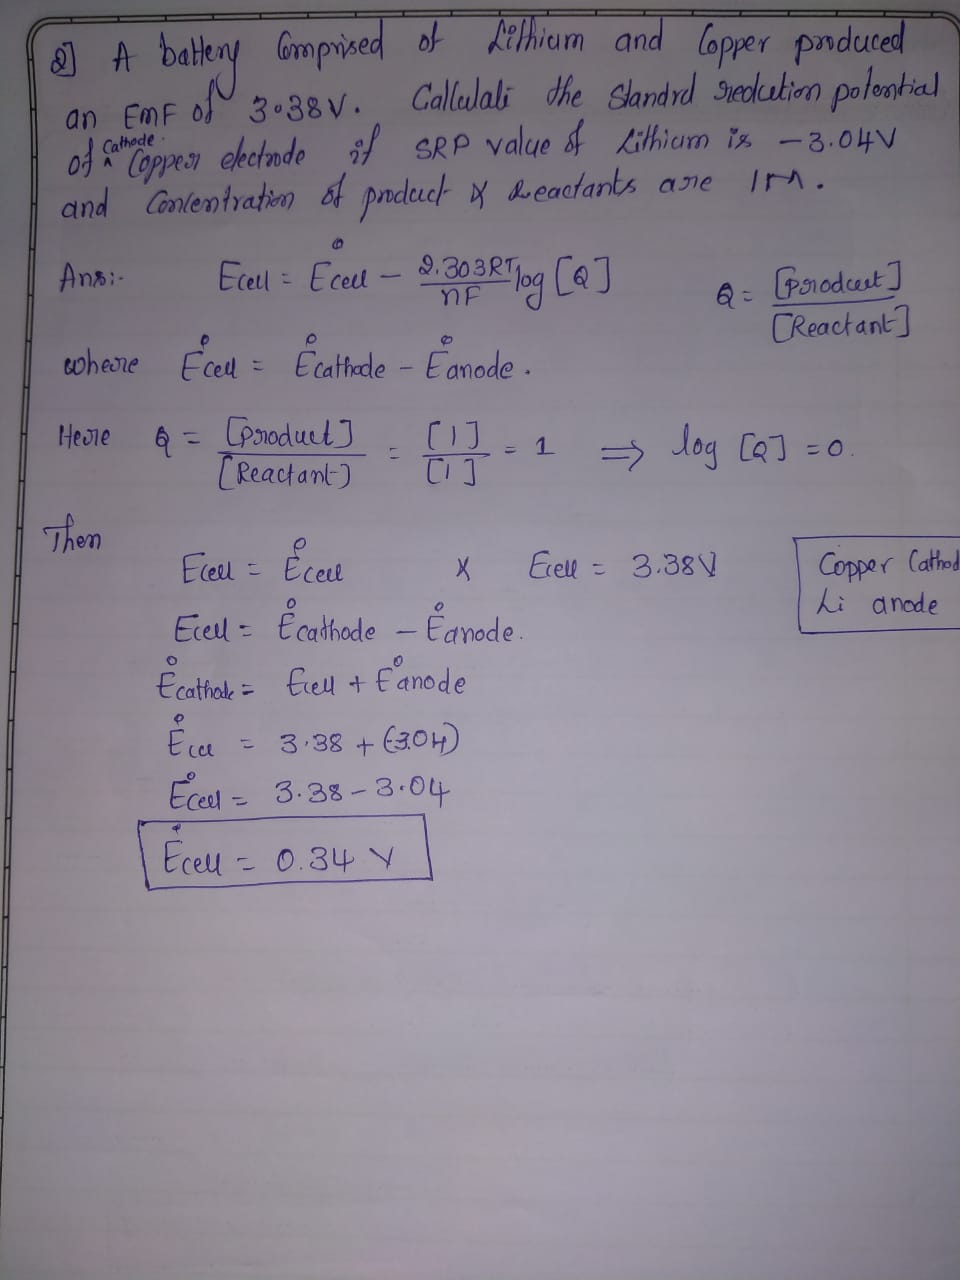 Q] A battery Comprised of Lithium and Copper produced
an EMF of 3.38V. Callulali the Standrd reduction potential
of Cathode Copper electrode if SRP value of Lithium is -3.04V
and Concentration of product & Reactants are 1M.
Ans:- Ecell = E°cell - 2.303RT/nF log [Q] Q = [product]/[Reactant]
where E°cell = E°cathode - E°anode.
Here Q = [product]/[Reactant] = [1]/[1] = 1 ⇒ log [Q] = 0.
Then
Ecell = E°cell & Ecell = 3.38V
Copper Cathod
Li anode
Ecell = E°cathode - E°anode.
E°cathode = Ecell + E°anode
E°cell = 3.38 + (-3.04)
E°cell = 3.38 - 3.04
E°cell = 0.34 V